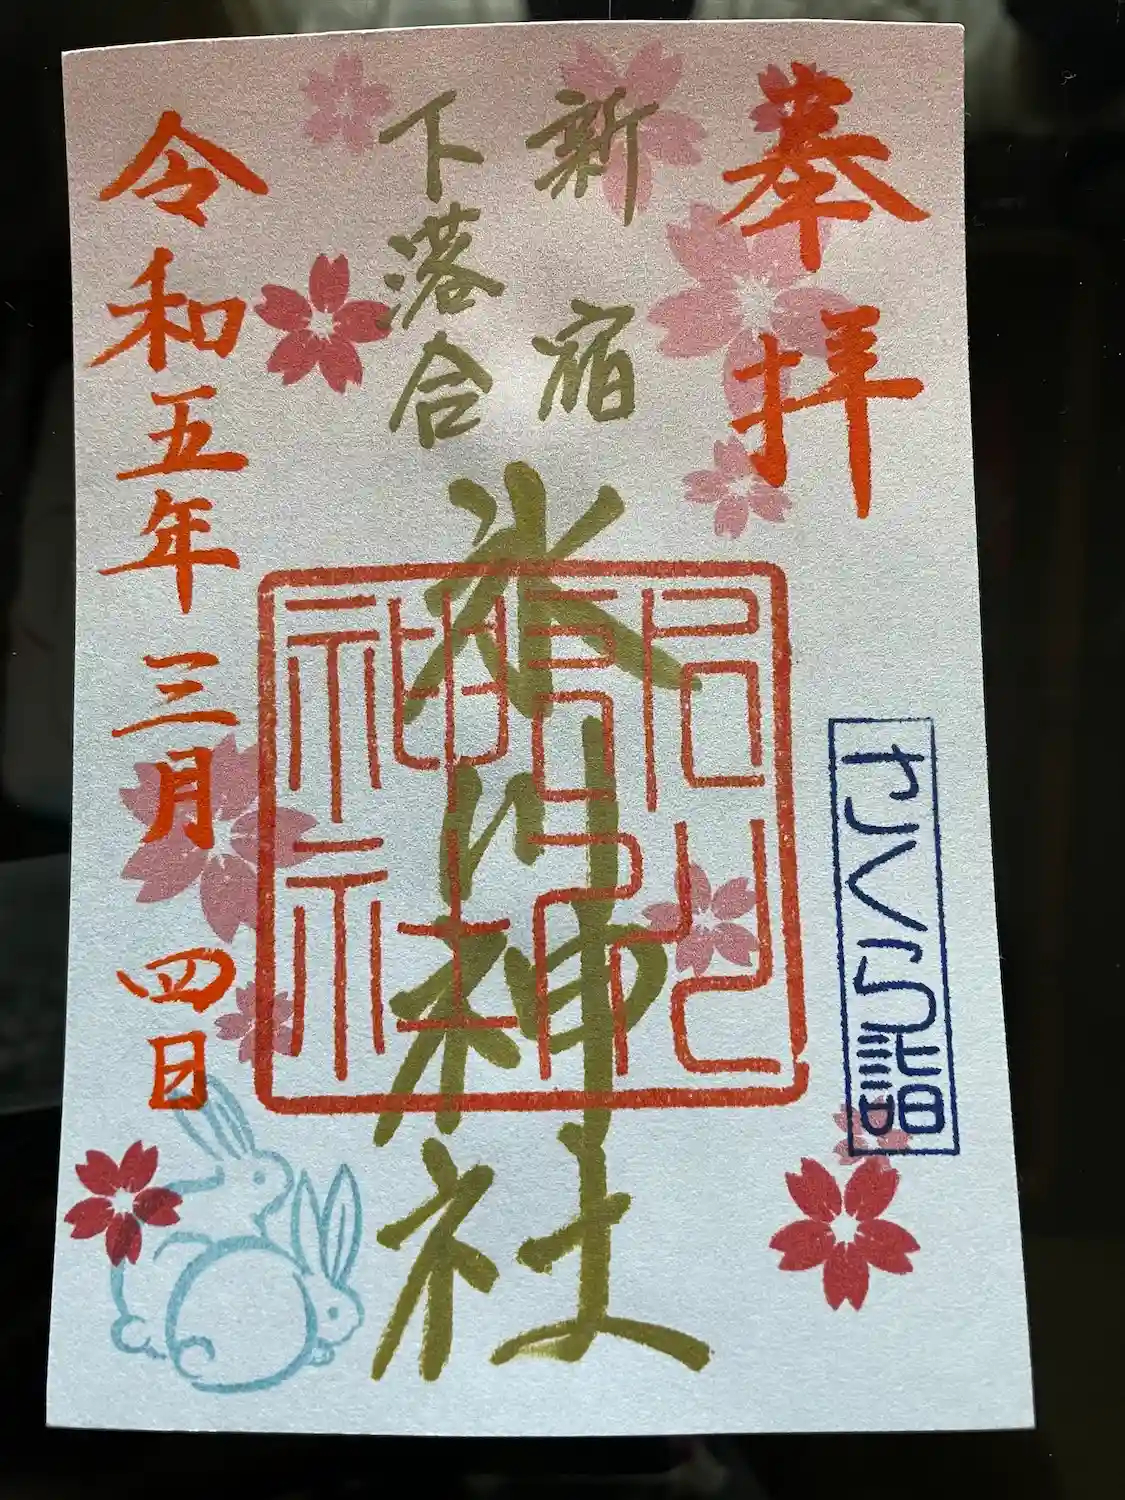 奉拝
さくら詣
新宿
下落合
氷川神社
神社
令和五年三月四日